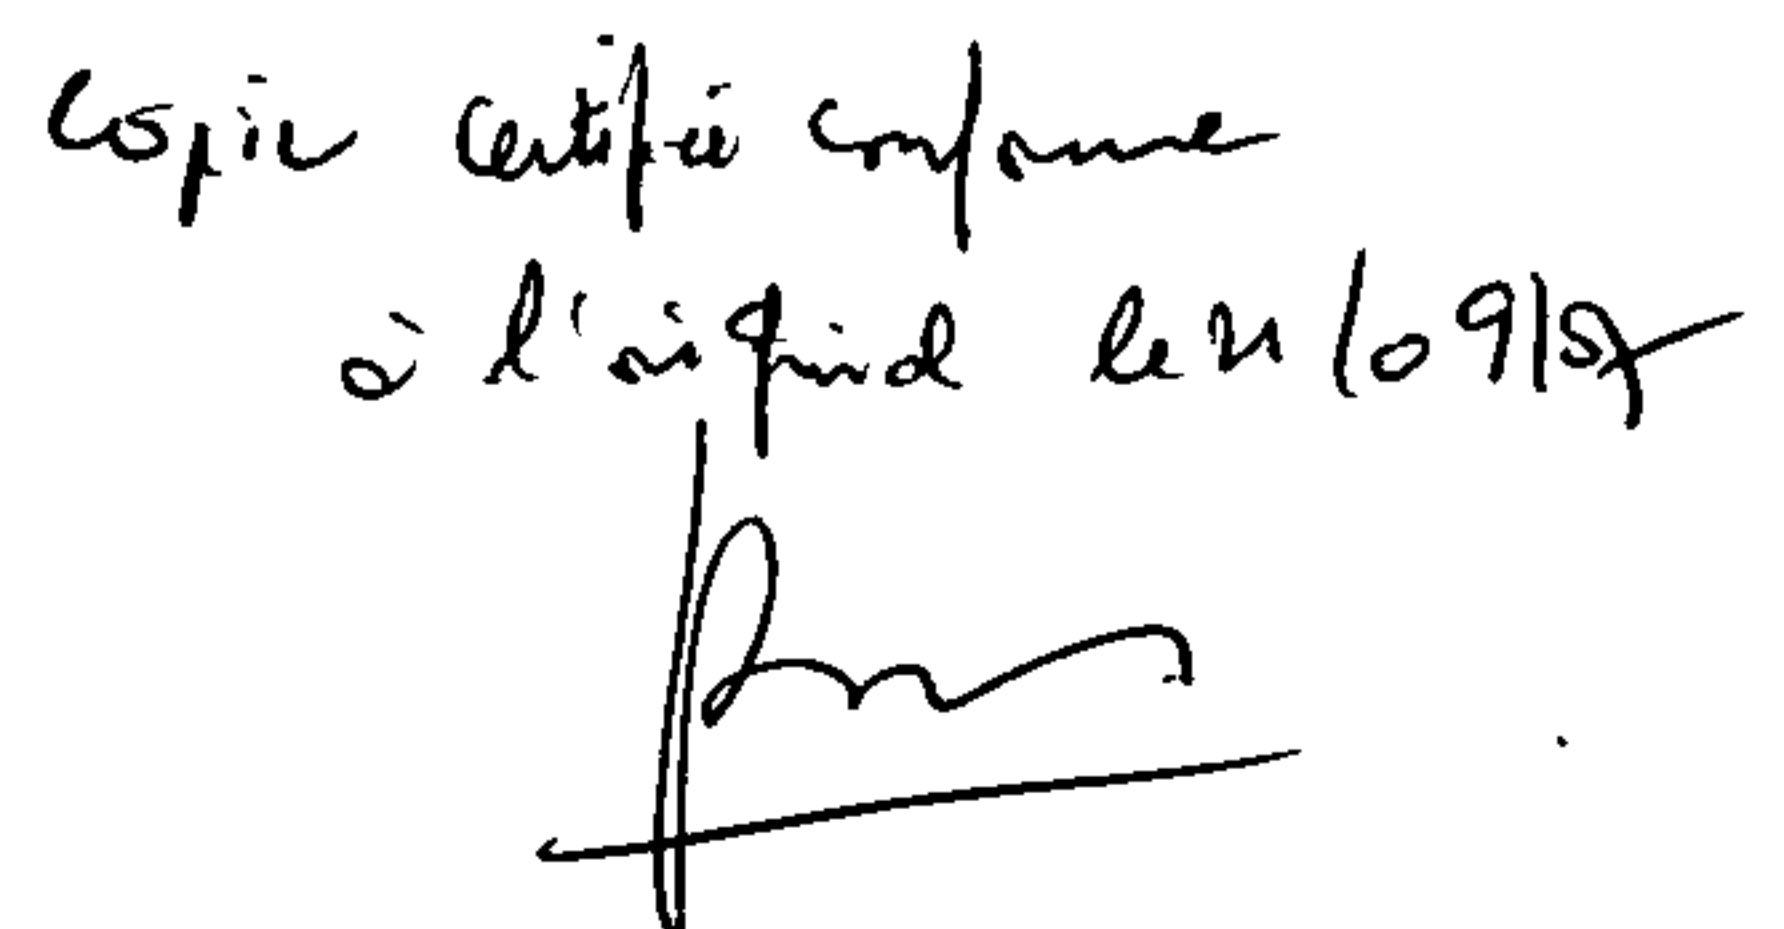 Copie certifiée conforme
à l'original le 21/09/